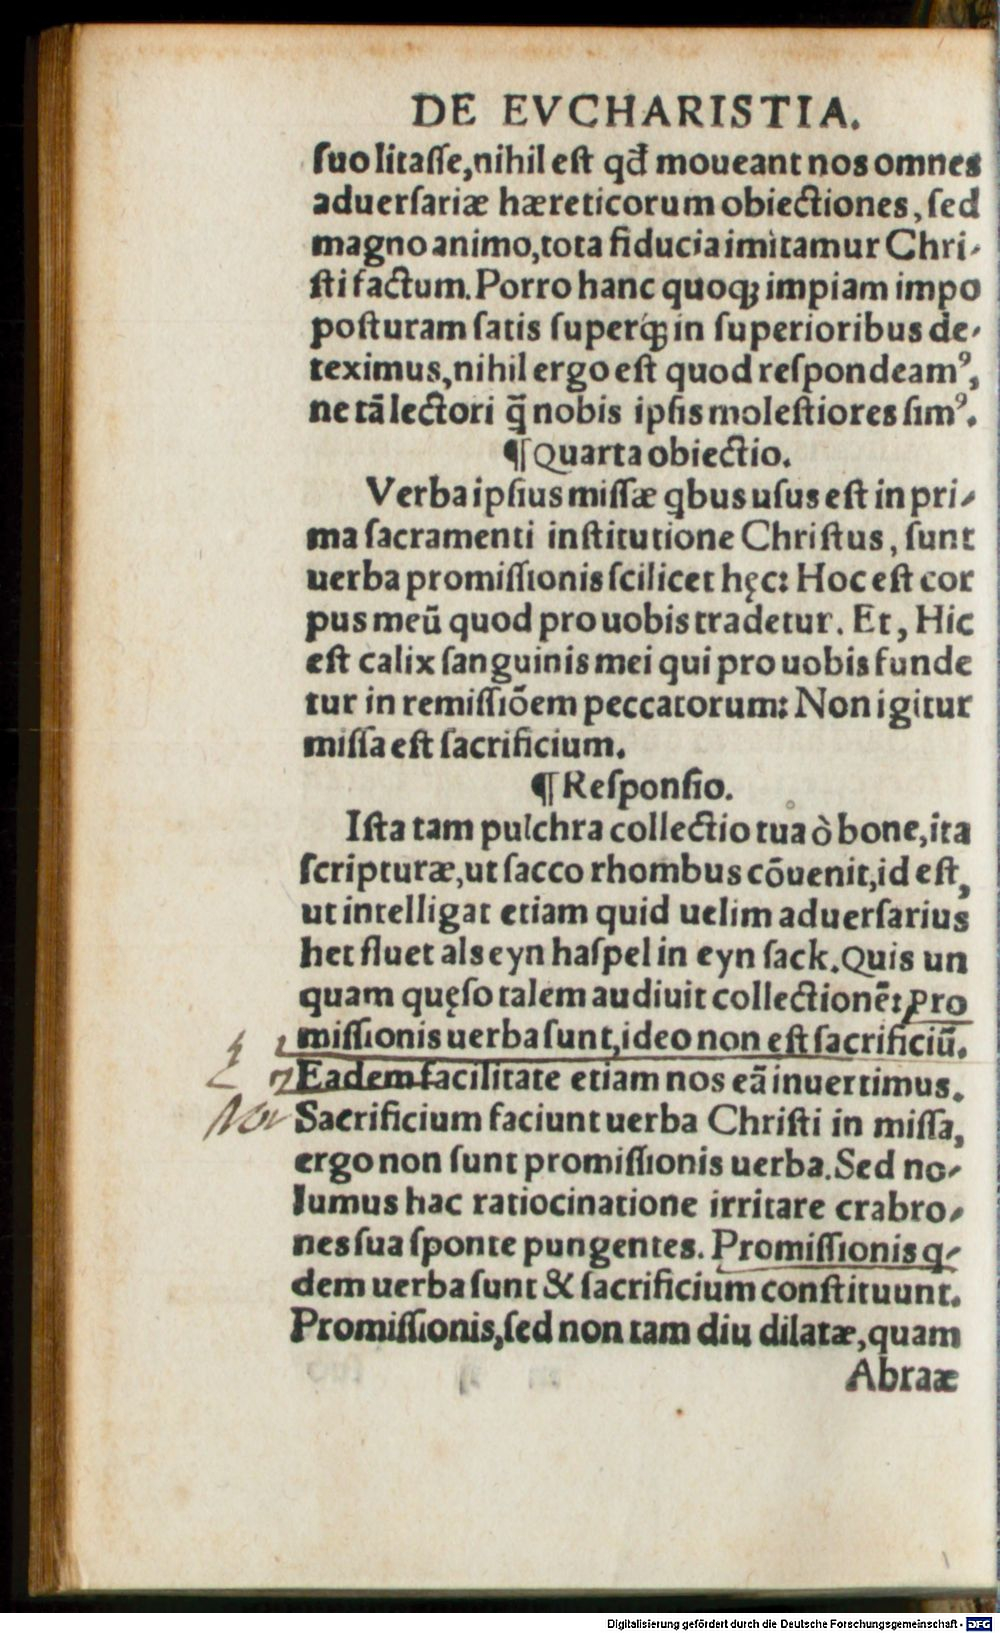 DE EVCHARISTIA.
ſuo litaſſe, nihil eſt qđ moueant nos omnes
aduerſariæ hæreticorum obiectiones, ſed
magno animo, tota fiducia imitamur Chri-
ſti factum. Porro hanc quoqꝫ impiam impo
poſturam ſatis ſuperꝗꝫ in ſuperioribus de-
teximus, nihil ergo eſt quod reſpondeamꝰ,
ne tã lectori q̃ nobis ipſis moleſtiores ſimꝰ.
¶ Quarta obiectio.
Verba ipſius miſſæ ꝗbus uſus eſt in pri-
ma ſacramenti inſtitutione Chriſtus, ſunt
uerba promiſſionis ſcilicet hęc: Hoc eſt cor
pus meũ quod pro uobis tradetur. Et, Hic
eſt calix ſanguinis mei qui pro uobis funde
tur in remiſſiõem peccatorum: Non igitur
miſſa eſt ſacrificium.
¶ Reſponſio.
Iſta tam pulchra collectio tua ò bone, ita
ſcripturæ, ut ſacco rhombus cõuenit, id eſt,
ut intelligat etiam quid uelim aduerſarius
het fluet als eyn haſpel in eyn ſack. Quis un
quam quęſo talem audiuit collectionẽ: Pro
miſſionis uerba ſunt, ideo non eſt ſacrificiũ.
Eadem facilitate etiam nos eã inuertimus.
Sacrificium faciunt uerba Chriſti in miſſa,
ergo non ſunt promiſſionis uerba. Sed no-
lumus hac ratiocinatione irritare crabro-
nes ſua ſponte pungentes. Promiſſionis ꝗ-
dem uerba ſunt & ſacrificium conſtituunt.
Promiſſionis, ſed non tam diu dilatæ, quam
Abraæ
Digitalisierung gefördert durch die Deutsche Forschungsgemeinschaft - DFG